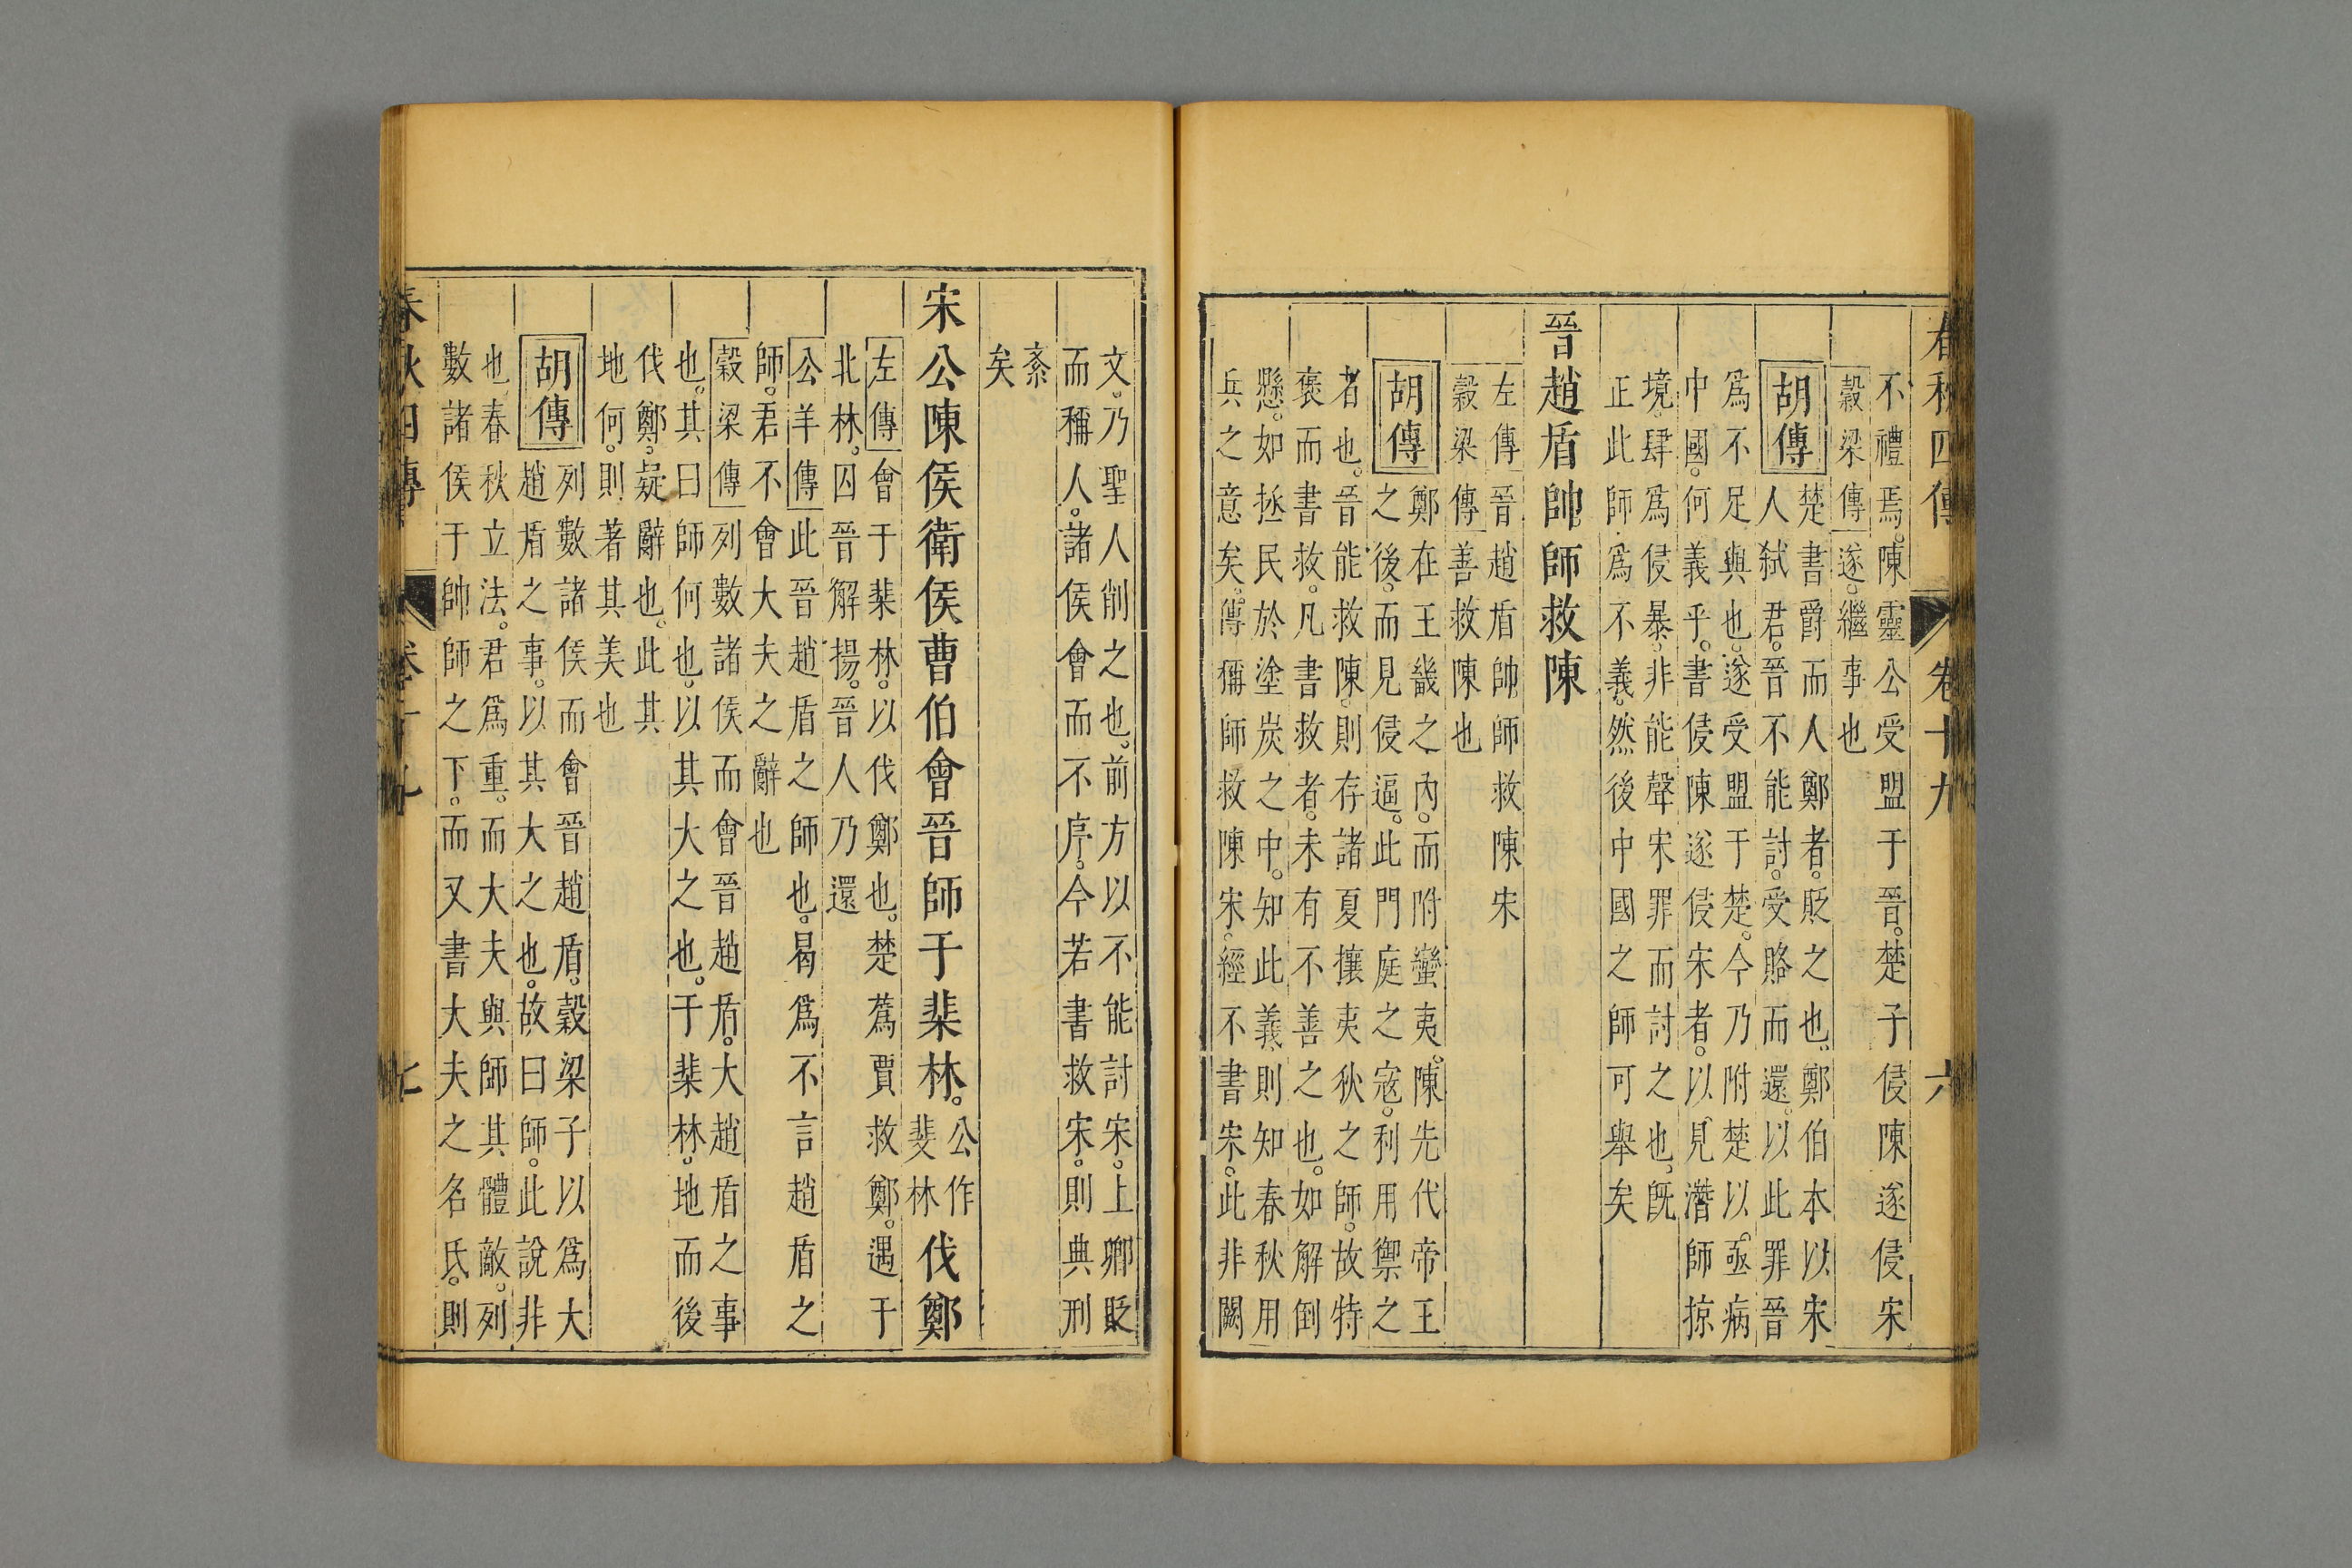 春秋四傳 卷十九 六
不禮焉。陳靈公受盟于晉。楚子侵陳遂侵宋
穀梁傳遂。繼事也
胡傳
楚書爵而人鄭者。貶之也。鄭伯本以宋
人弑君。晉不能討。受賂而還。以此罪晉
爲不足與也。遂受盟于楚。今乃附楚以亟病
中國。何義乎。書侵陳遂侵宋者。以見潛師掠
境。肆爲侵暴。非能聲宋罪而討之也。旣
正此師爲不義。然後中國之師可舉矣
晉趙盾帥師救陳
左傳晉趙盾帥師救陳宋
穀梁傳善救陳也
胡傳
鄭在王畿之內。而附蠻夷。陳先代帝王
之後。而見侵逼。此門庭之寇。利用禦之
者也。晉能救陳。則存諸夏攘夷狄之師。故特
褒而書救。凡書救者。未有不善之也。如解倒
懸。如拯民於塗炭之中。知此義則知春秋用
兵之意矣。傳稱師救陳宋。經不書宋。此非闕
文。乃聖人削之也。前方以不能討宋。上卿貶
而稱人。諸侯會而不序。今若書救宋。則典刑
紊
矣
宋公陳侯衛侯曹伯會晉師于棐林。公作斐林伐鄭
左傳會于棐林。以伐鄭也。楚蔿賈救鄭。遇于
北林。囚晉解揚。晉人乃還
公羊傳此晉趙盾之師也。曷爲不言趙盾之
師。君不會大夫之辭也
穀梁傳列數諸侯而會晉趙盾。大趙盾之事
也。其曰師何也。以其大之也。于棐林。地而後
伐鄭。疑辭也。此其
地何。則著其美也
胡傳
列數諸侯而會晉趙盾。穀梁子以爲大
趙盾之事。以其大之也。故曰師。此說非
也。春秋立法。君爲重。而大夫與師其體敵。列
數諸侯于帥師之下。而又書大夫之名氏。則
春秋四傳 卷十九 七